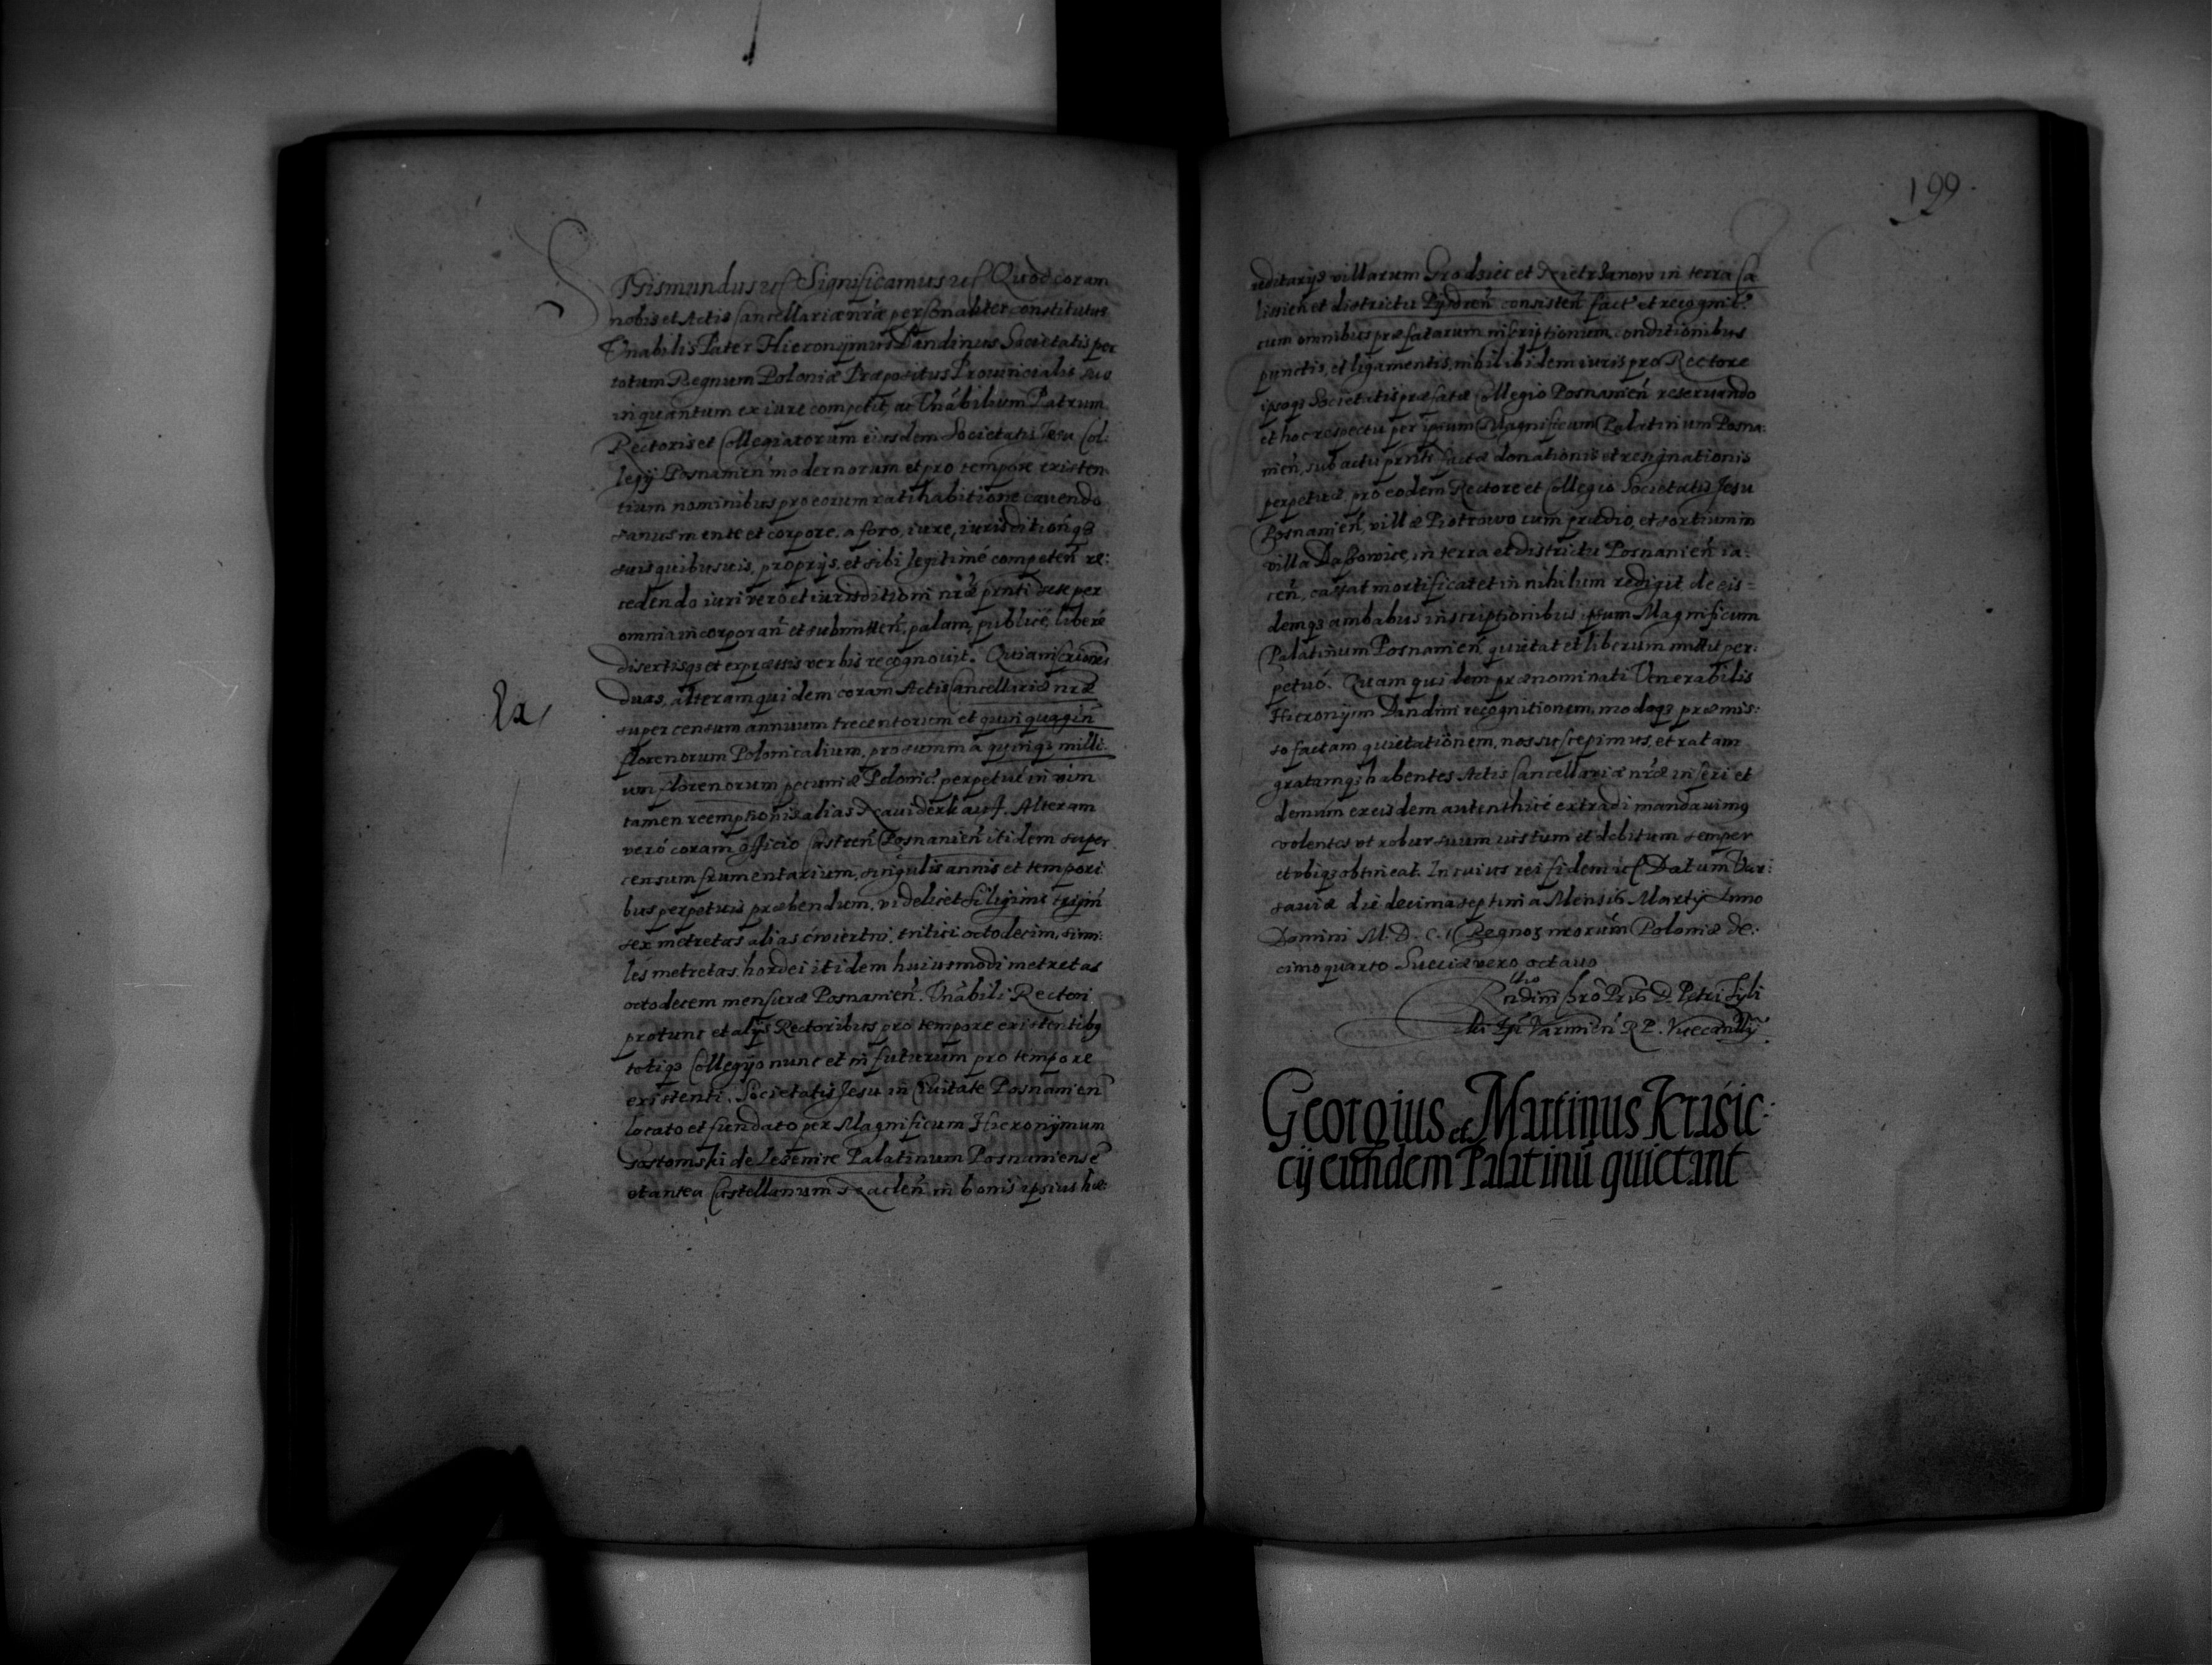 Sigismundus etc Significamus etc Quod coram
nobis et Actis Cancellariæ nræ personaliter constitutus
Vnabilis Pater Hieronymus Dandinus Societatis per
totum Regnum Poloniæ Præpositus Prouincialis suo
in quantum ex iure competit, ac Vnabilium Patrum
Rectoris et Collegiatorum eiusdem Societatis Jesu Col:
legij Posnanień modernorum et pro tempore existen
tium nominibus pro eorum ratihabitione cauendo
sanus mente et corpore, a foro, iure, iurisditionqȝ
suis quibusuis, proprijs, et sibi legitimé competeń re:
cedendo iuri vero et iurisditioni nræ prnti sese per
omnia incorporań et submitteń, palam, publicé, liberé
disertisqȝ et expressis verbis recognouit. Quia inscriones
duas, alteram quidem coram Actis Cancellariæ nræ
super censum annuum trecentorum et quinquagin
florenorum Polonicalium, pro summa quinqȝ milli:
um florenorum pecuniæ Polonic perpetué in vim
tamen reemptionis alias
veró coram officio Castreń Posnanień itidem super
censum frumentarium, singulis annis et tempori
bus perpetuis præbendum, videlicet Siliginis trigin
sex metretas alias ćwiertni, tritici octodecim, simi:
lés metretas, hordei itidem huiusmodi metretas
octodecem mensuræ Posnanień. Vnabili Rectori
protunc et alijs Rectoribus pro tempore existentibȝ
totiqȝ Collegijo nunc et in futurum pro tempore
existenti, Societatis Jesu in Ciuitate Posnanień
locato et fundato per Magnificum Hieronijmum
Gostomski de Lezenice Palatinum Posnaniensē
et antea Castellanum Nacleń in bonis ipsius hæ:
Ex
199.
reditarijs villarum Grodziec et in terra Ca
lissień et districtu Pijzdreń consisteń fact et recognit.
cum omnibus præfatarum inscriptionum, conditionibus
punctis, et ligamentis, nihil ibidem iuris pro Rectore
ipsoqȝ Societatis præfatæ Collegio Posnanień reseruando
et hoc respectu per ipsum Magnificum Palatinum Posna:
nień, sub actu prnti factæ donationis et resignationis
perpetuæ, pro eodem Rectore et Collegio Societatis Jesu
Posnanień, villæ Piotrowo cum prædio, et sortium in
villa Daszowice, in terra et districtu Posnanień ia:
ceń, cassat mortificat et in nihilum redigit, de eis=
demqȝ ambabus inscriptionibus ipsum Magnificum
Palatinum Posnanień quietat et liberum mittit per:
petuó. Quam quidem prænominati Venerabilis
Hieronijmi Dandini recognitionem, modoqȝ præmis:
so factam quietationem, nos suscepimus, et ratam
gratamqȝ habentes Actis Cancellariæ nræ inseri et
demum ex eisdem autenthicé extradi mandauimȝ
volentes vt robur suum iustum et debitum semper
et vbiqȝ obtineat. In cuius rei fidem etc Datum Var:
sauiæ die decima septima Mensis Martij Anno
Domini M. D. C. I Regnoȝ nrorum Poloniæ de:
cimo quarto Sueciæ vero octauo
D. Petri Tyli
Varmień R P. Vicecancllrij
Georgius et Martinus Krisic:
cij eundem Palatinū quictant